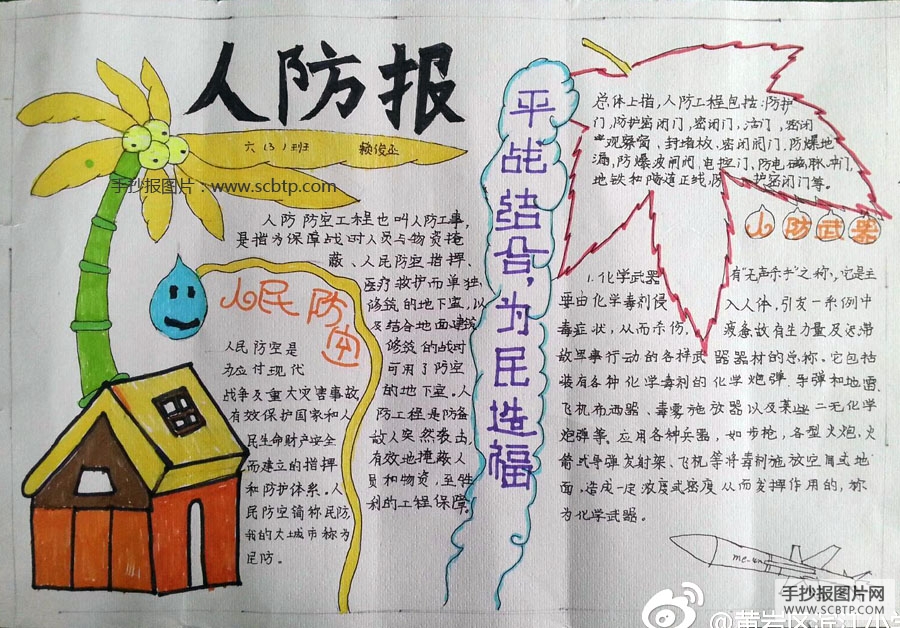 人防报
六(3)班 赖俊正
手抄报图片:www.scbtp.com
人防防空工程也叫人防工事,
是指为保障战时人员与物资掩
蔽、人民防空指挥、
医疗救护而单独
修筑的地下室,以
及结合地面建筑
修筑的战时
可用于防空
的地下室。人
防工程是防备
敌人突然袭击,
有效地掩蔽人
员和物资,
利的工程保障。
人民防空
人民防空是
为应付现代
战争及重大灾害事故
有效保护国家和人
民生命财产安全
而建立的指挥
和防护体系。人
民防空简称民防
我的大城市称为
民防。
平战结合,为民造福
总体上指,人防工程包括:防护
门,防护密闭门,密闭门,活门,密闭
观察窗,封堵板,密闭阀门,防爆地
漏,防爆波闸阀,电控门,防电磁脉冲门,
地铁和隧道正线防 护密闭门等。
人防武器
1.化学武器 有"无声杀手"之称,它是主
要由化学毒剂侵 入人体,引发一系例中
毒症状,从而杀伤, 疲惫敌有生力量及迟滞
敌军事行动的各种武器器材的总称。它包括
装有各种化学毒剂的化学炮弹.导弹和地雷.
飞机布洒器、毒雾施放器以及某些二元化学
炮弹等。应用各种兵器,如步枪,各型火炮,火
箭或导弹发射架、飞机等将毒剂施放空间或地
面,造成一定浓度或密度从而发挥作用的,称
为化学武器。
手抄报图片网
WWW.SCBTP.COM